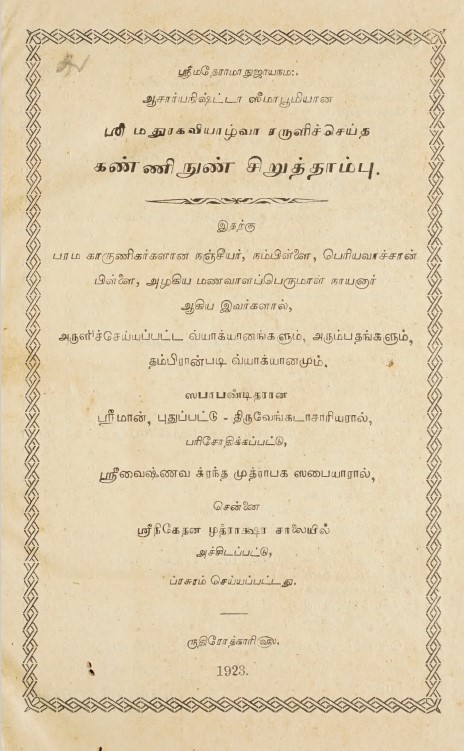 ஸ்ரீமதேராமாநுஜாயநம:.
ஆசார்யநிஷ்ட்டா ஸீமாபூமியான
ஸ்ரீ மதுரகவியாழ்வா ரருளிச்செய்த
கண்ணிநுண் சிறுத்தாம்பு.
இதற்கு
பரம காருணிகர்களான நஞ்சீயர், நம்பிள்ளை, பெரியவாச்சான்
பிள்ளை, அழகிய மணவாளப்பெருமாள் நாயனார்
ஆகிய இவர்களால்,
அருளிச்செய்யப்பட்ட வ்யாக்யானங்களும், அரும்பதங்களும்,
தம்பிரான்படி வ்யாக்யானமும்.
ஸபாபண்டிதரான
ஸ்ரீமான், புதுப்பட்டு - திருவேங்கடாசாரியரால்,
பரிசோதிக்கப்பட்டு,
ஸ்ரீவைஷ்ணவ க்ரந்த முத்ராபக ஸபையாரால்,
சென்னை
ஸ்ரீநிகேதன முத்ராக்ஷர சாலையில்
அச்சிடப்பட்டு,
ப்ரசுரம் செய்யப்பட்டது.
ருதிரோத்காரி௵.
1923.